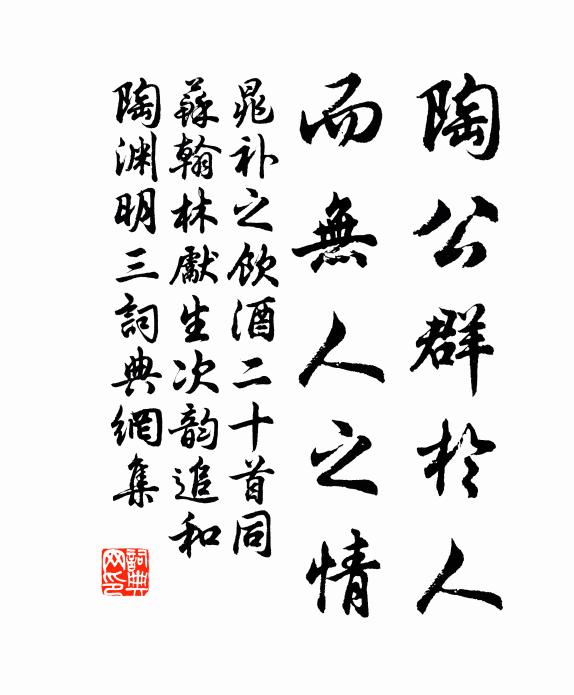 陶公群於人
而無人之情
晁补之飲酒二十首同
蘇翰林獻生次韵追和
陶渊明三詞典網集
詞典网印